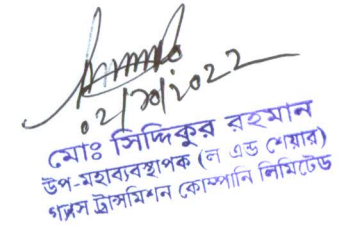 মোঃ সিদ্দিকুর রহমান
উপ-মহাব্যবস্থাপক (ল এন্ড শেয়ার)
গ্যাস ট্রান্সমিশন কোম্পানি লিমিটেড